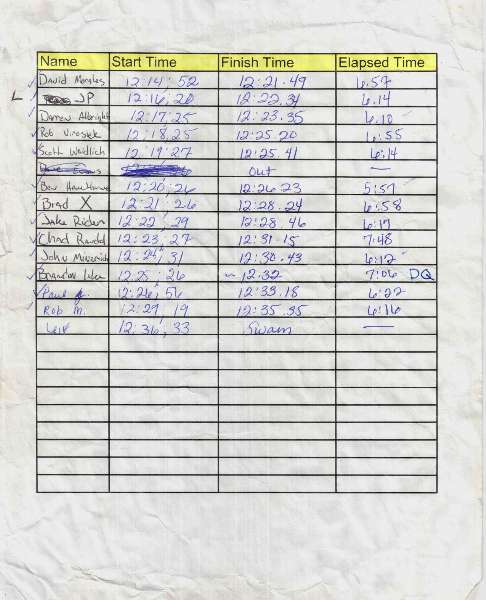 Name Start Time Finish Time Elapsed Time
David 12:14:52 12:21.49 6.57
L JP 12:16.20 12:22.34 6.14
Darren Albright 12:17:25 12:23.35 6.10
Rob 12:18.25 12:25 20 6:55
Scott 12:19:27 12:25.41 6:14
out —
Ben 12:20:26 12:26 23 5:57
Brad X 12:21:26 12:28.24 6:58
Jake 12:22:29 12:28.46 6:17
Chad 12:23:27 12:31.15 7:48
John 12:24:31 12:30.43 6:12
Brandon 12:25:26 12:32 7:06 DQ
Paul 12:26:56 12:33.18 6:22
Rob M. 12:29.19 12:35.35 6:16
Leif 12:36:33 Swam —